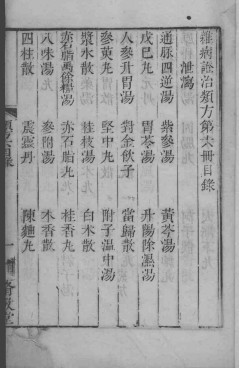 雜病證治類方第六冊目錄
泄瀉
通脉四逆湯 紫參湯 黃芩湯
戊巳丸 胃苓湯 升陽除濕湯
人參升胃湯 對金飲子 當歸散
參萸丸 堅中丸 附子溫中湯
漿水散 桂枝湯 白术散
赤石脂禹餘糧湯 赤石脂丸 桂香丸
八味湯 參附湯 木香散
四柱散 震靈丹 陳麯丸